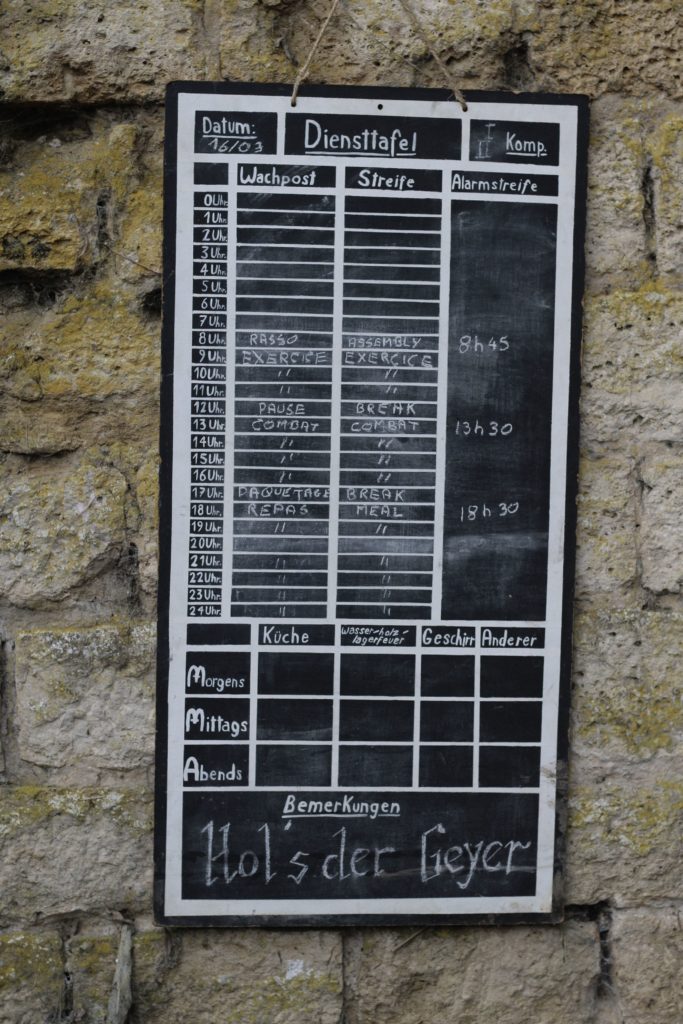 Datum: Diensttafel I Komp.
16/03 II
Wachpost Streife Alarmstreife
0 Uhr.
1 Uhr.
2 Uhr.
3 Uhr.
4 Uhr.
5 Uhr.
6 Uhr.
7 Uhr.
8 Uhr. RASSO ASSEMBLY 8h45
9 Uhr. EXERCISE EXERCICE
10 Uhr. " "
11 Uhr. " "
12 Uhr. PAUSE BREAK
13 Uhr. COMBAT COMBAT 13h30
14 Uhr. " "
15 Uhr. " "
16 Uhr. " "
17 Uhr. PAQUETAGE BREAK
18 Uhr. REPAS MEAL 18h30
19 Uhr. " "
20 Uhr.
21 Uhr. " "
22 Uhr. " "
23 Uhr. " "
24 Uhr. " "
Küche Wasser-holz- Geschirr Anderer
lagerfeuer
Morgens
Mittags
Abends
Bemerkungen
Hol's der Geyer